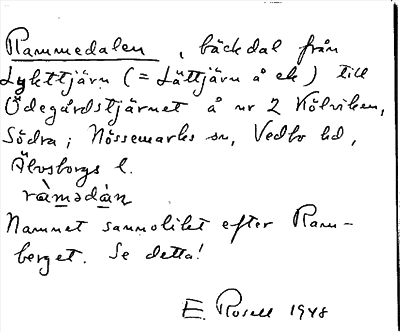 Rammedalen, bäckdal från
Lykttjärn (= Lättjärn å ek) till
Ödegårdstjärnet å nr 2 Kölviken,
Södra; Nössemarks sn, Vedbo hd,
Älvsborgs l.
ràmədàn
Namnet sannolikt efter Ram-
berget. Se detta!
E. Rosell 1948